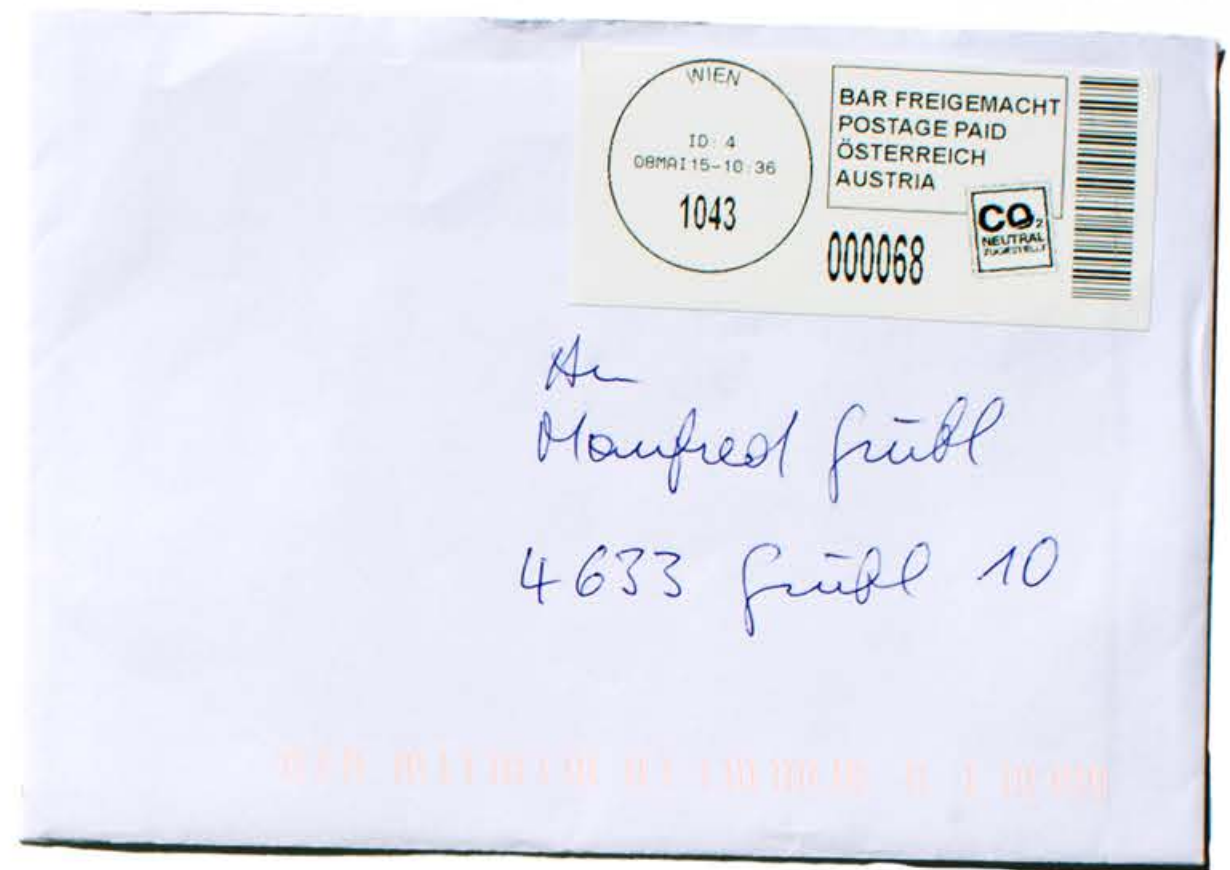 WIEN
ID: 4
08MAI15-10:36
1043
BAR FREIGEMACHT
POSTAGE PAID
ÖSTERREICH
AUSTRIA
CO2
NEUTRAL
ZUGESTELLT
000068
Hn
Manfred Grübl
4633 Grübl 10